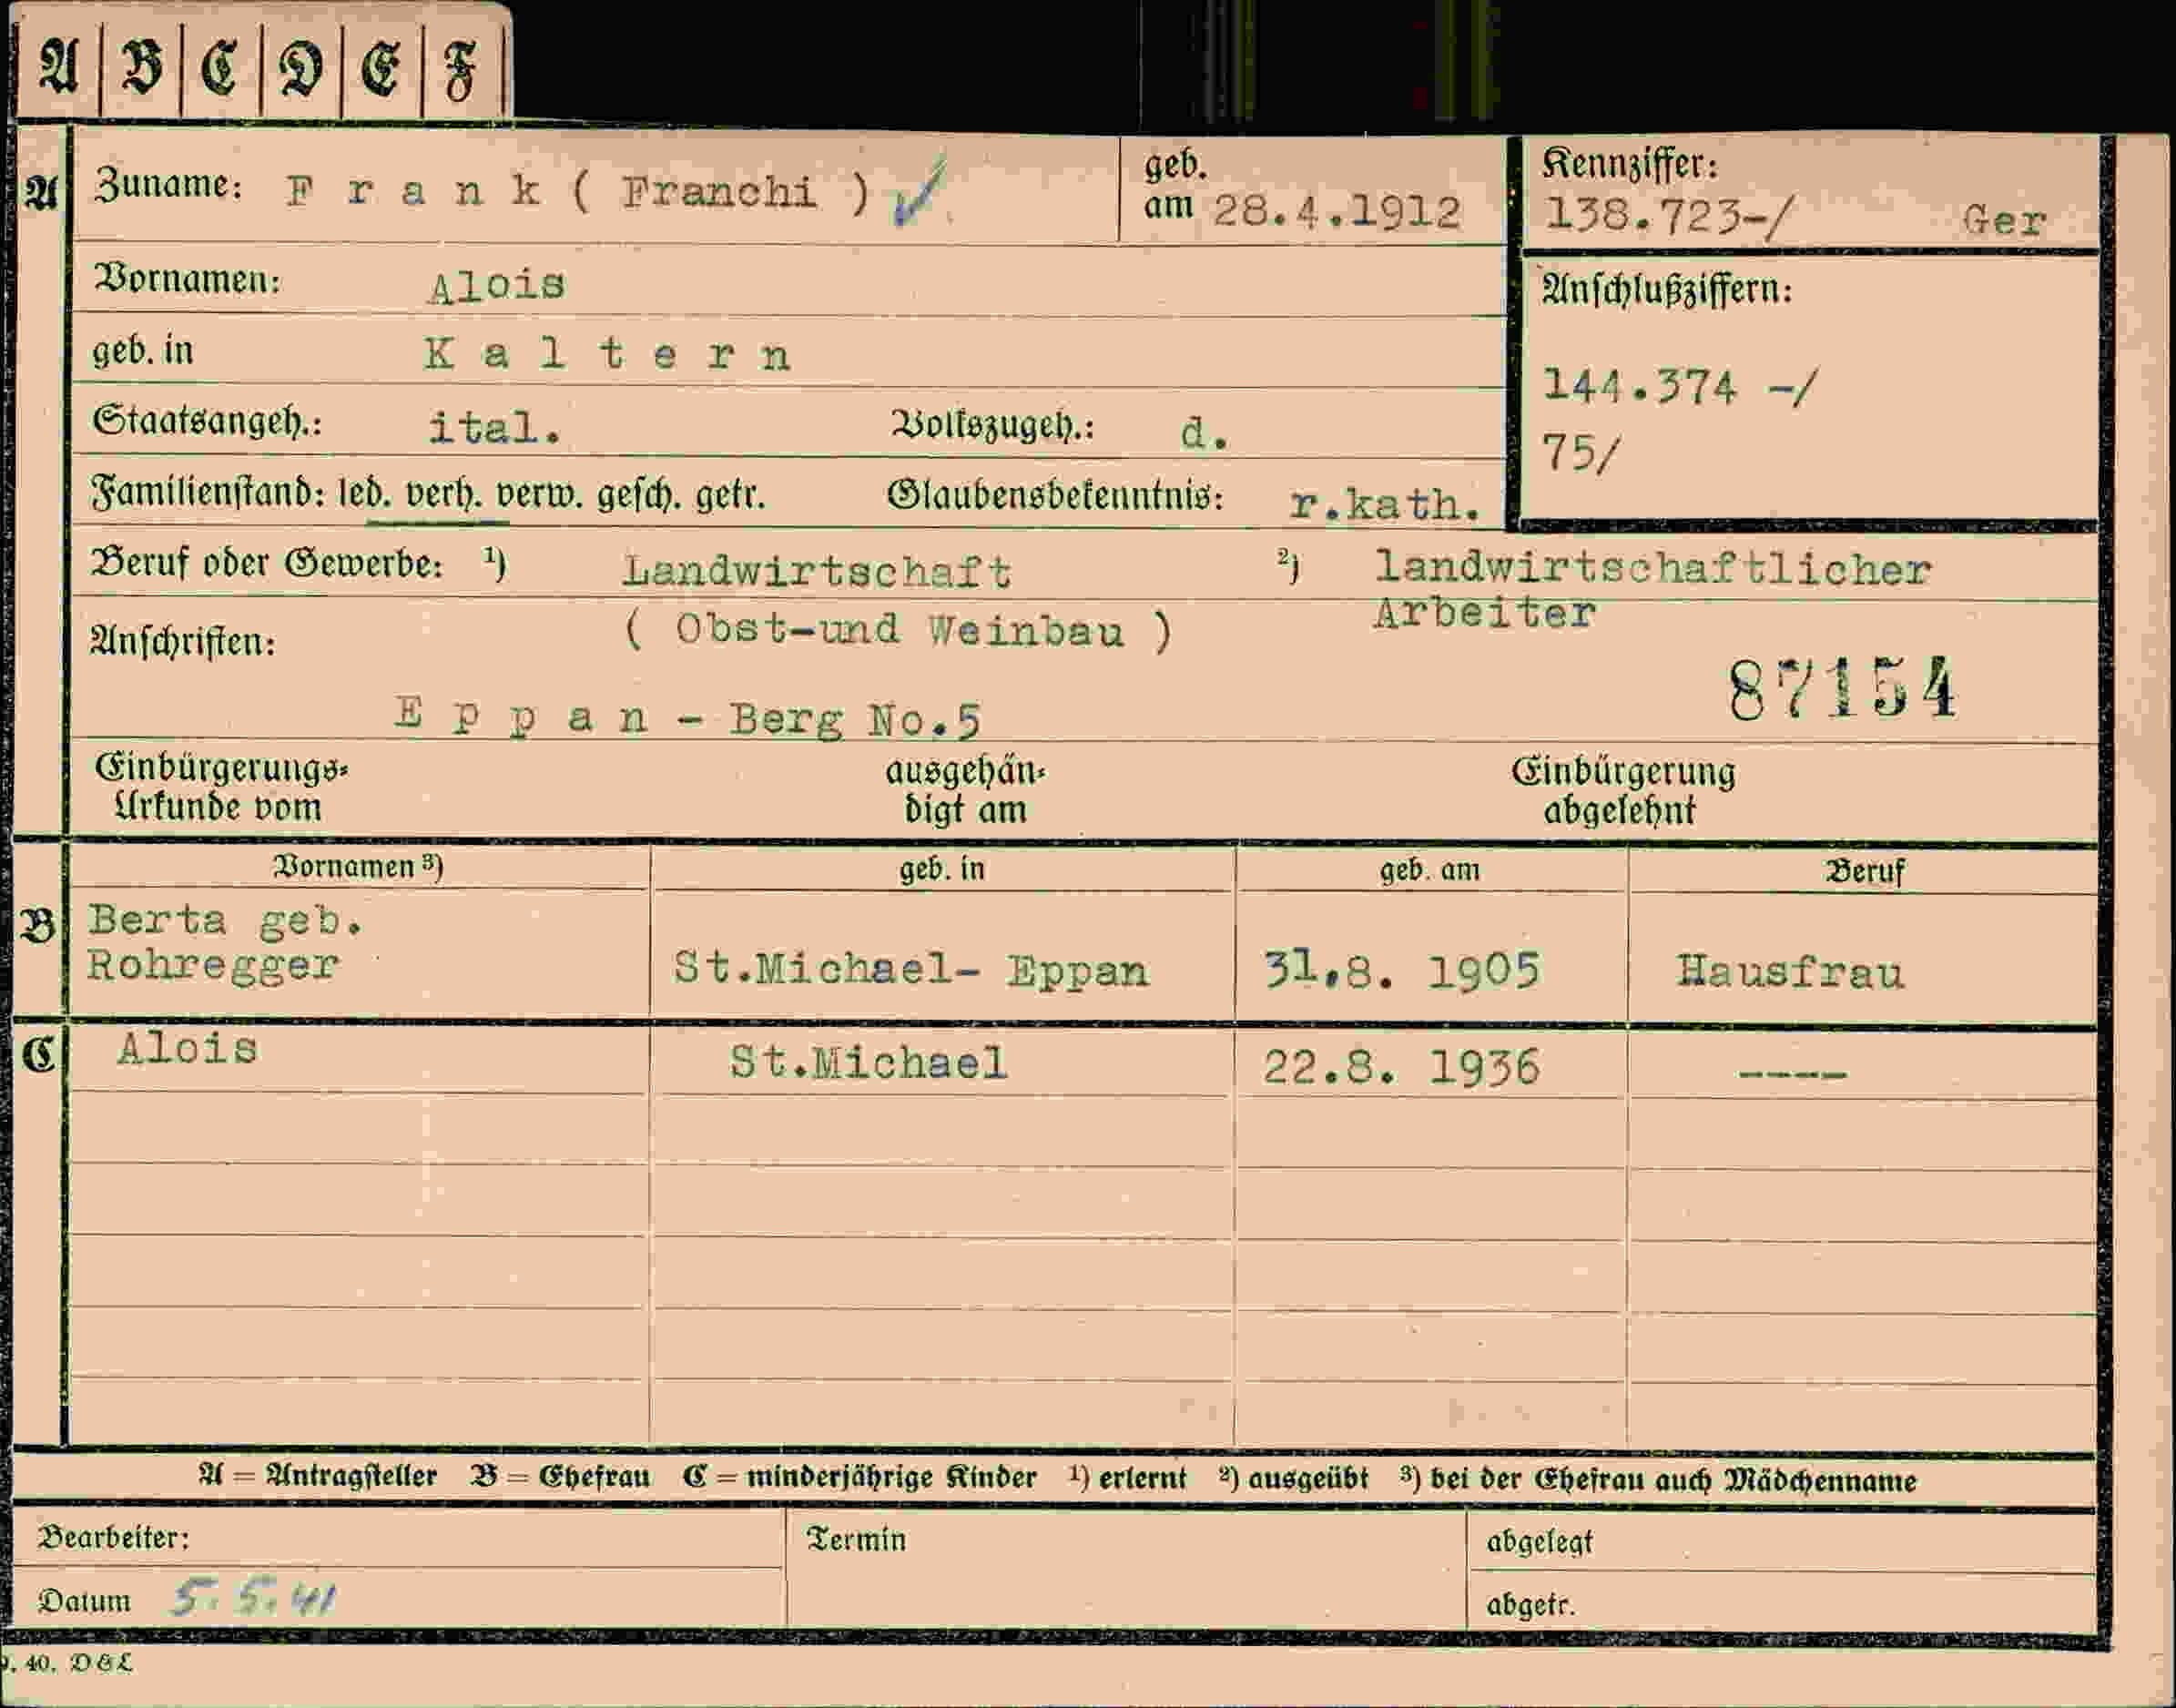 A B C D E F
A Zuname: F r a n k ( Franchi ) ✓ geb. am 28.4.1912 Kennziffer: 138.723-/ Ger
Vornamen: Alois Anschlußziffern:
geb. in K a l t e r n 144.374 -/
Staatsangeh.: ital. Volkszugeh.: d. 75/
Familienstand: led. verh. verw. gesch. getr. Glaubensbekenntnis: r.kath.
Beruf oder Gewerbe: ¹) Landwirtschaft ²) landwirtschaftlicher
( Obst-und Weinbau ) Arbeiter
Anschriften:
87154
E p p a n - Berg No.5
Einbürgerungs- ausgehän- Einbürgerung
Urkunde vom digt am abgelehnt
Vornamen ³) geb. in geb. am Beruf
B Berta geb.
Rohregger St.Michael- Eppan 31.8. 1905 Hausfrau
C Alois St.Michael 22.8. 1936 ----
A = Antragsteller B = Ehefrau C = minderjährige Kinder ¹) erlernt ²) ausgeübt ³) bei der Ehefrau auch Mädchenname
Bearbeiter: Termin abgelegt
Datum 5.5.41 abgetr.
40. D & L